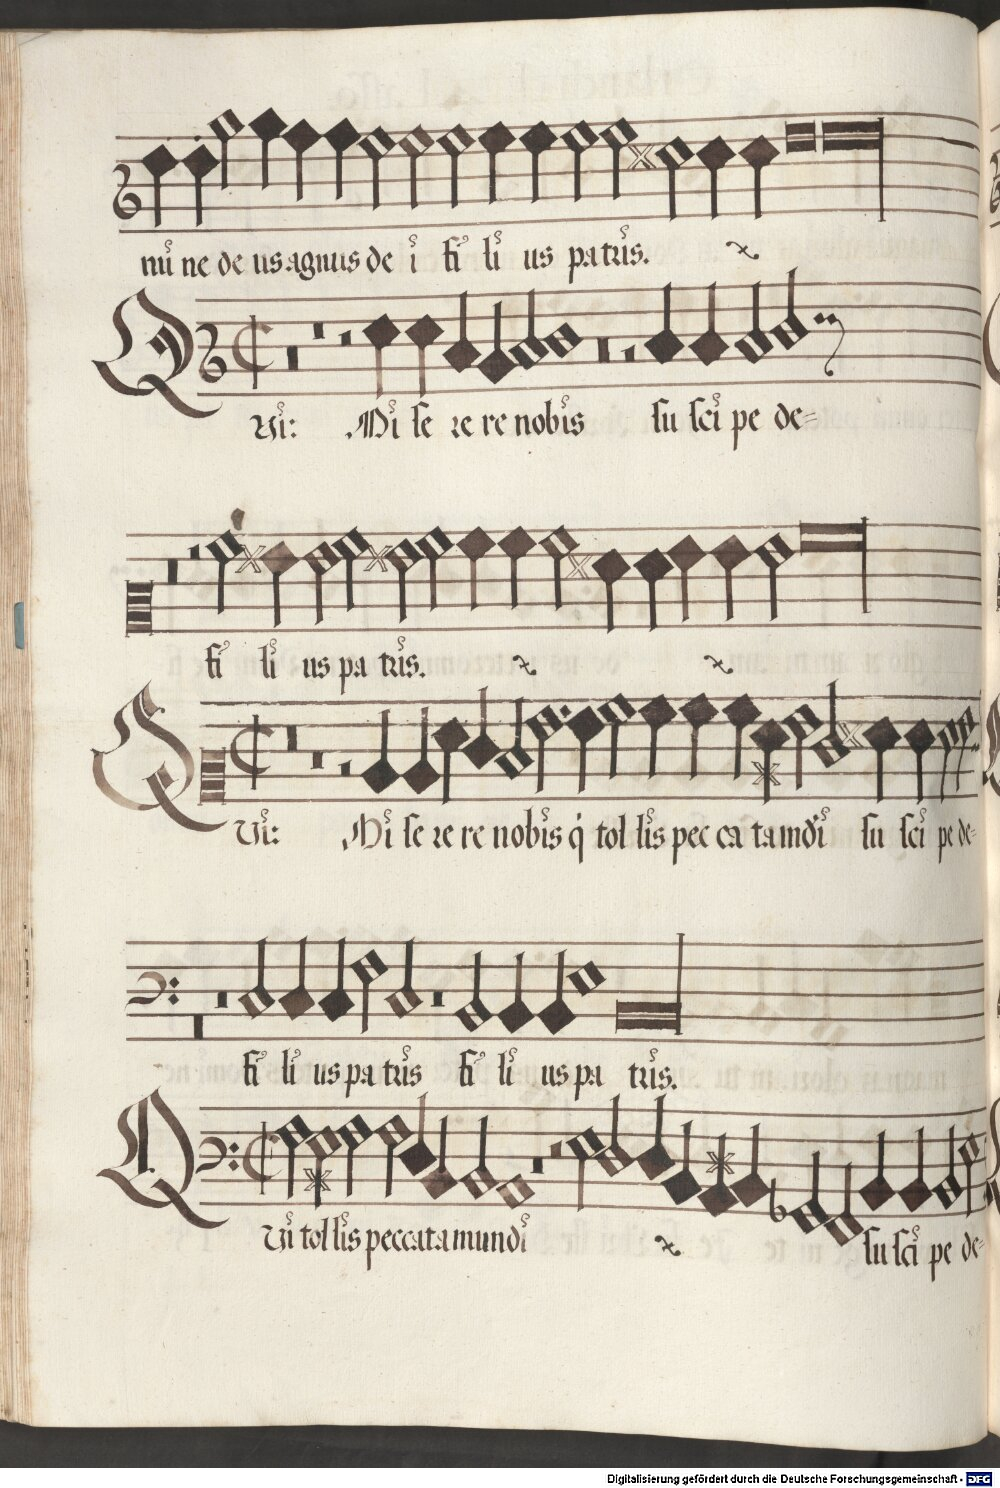 nū ne de us agnus de i fi li us patris.
Qui: Mi se re re nobis su sci pe de=
fi li us pa tris.
Qui: Mi se re re nobis q̇ tol lis pec ca ta mūdi su sci pe de=
fi li us pa tris fi li us pa tris.
Qui tollis peccata mundi su sci pe de=
Digitalisierung gefördert durch die Deutsche Forschungsgemeinschaft - DFG